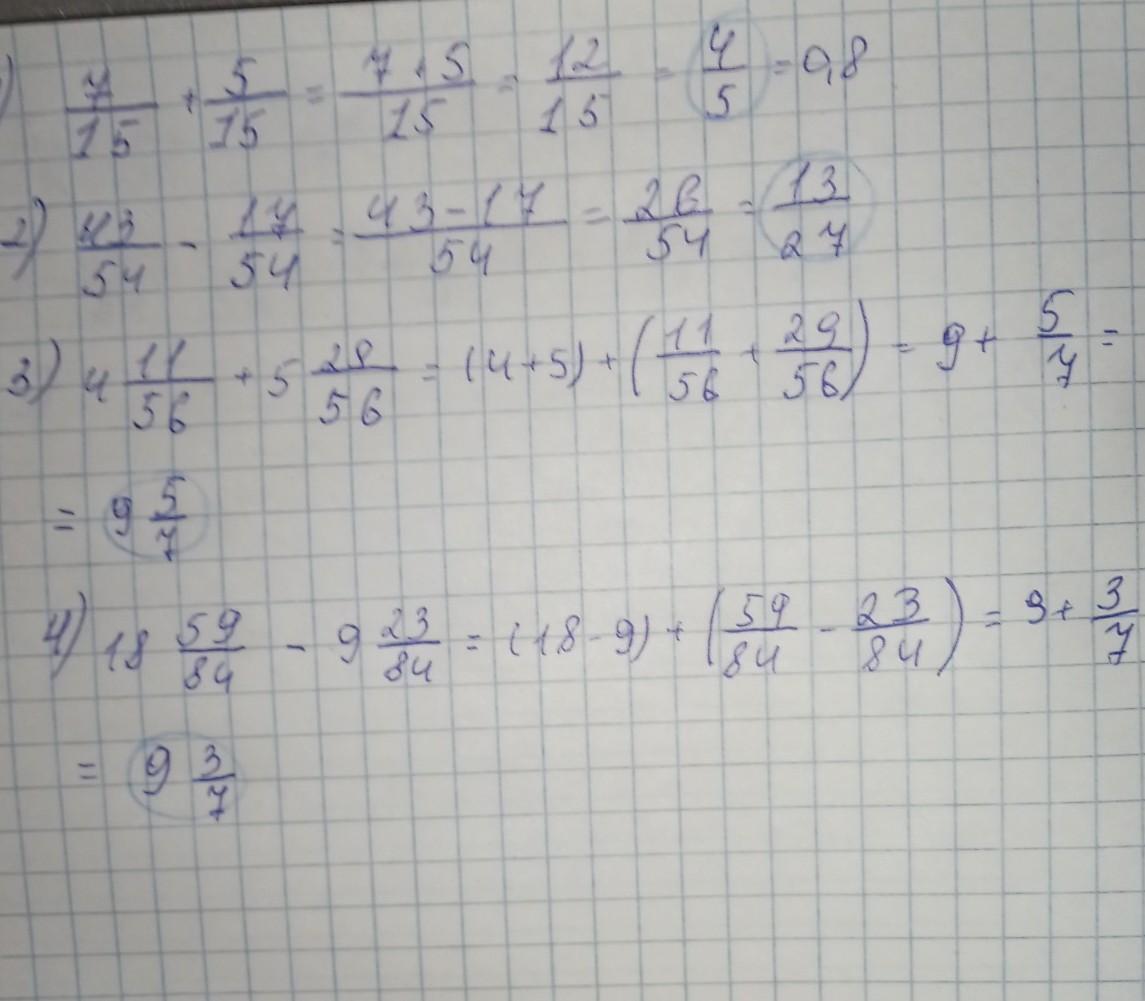 1) 7/15 + 5/15 = 7+5/15 = 12/15 = 4/5 = 0,8
2) 43/54 - 17/54 = 43-17/54 = 26/54 = 13/27
3) 4 11/56 + 5 29/56 = (4+5) + (11/56 + 29/56) = 9 + 5/7 =
= 9 5/7
4) 18 59/84 - 9 23/84 = (18-9) + (59/84 - 23/84) = 9 + 3/7
= 9 3/7